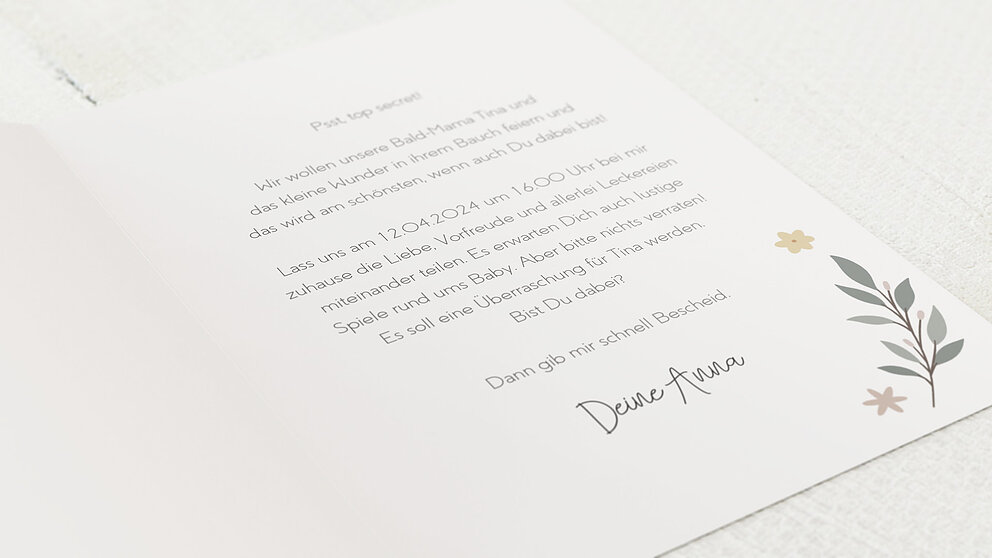 Psst, top secret!
Wir wollen unsere Bald-Mama Tina und
das kleine Wunder in ihrem Bauch feiern und
das wird am schönsten, wenn auch Du dabei bist!
Lass uns am 12.04.2024 um 16.00 Uhr bei mir
zuhause die Liebe, Vorfreude und allerlei Leckereien
miteinander teilen. Es erwarten Dich auch lustige
Spiele rund ums Baby. Aber bitte nichts verraten!
Es soll eine Überraschung für Tina werden.
Bist Du dabei?
Dann gib mir schnell Bescheid.
Deine Anna